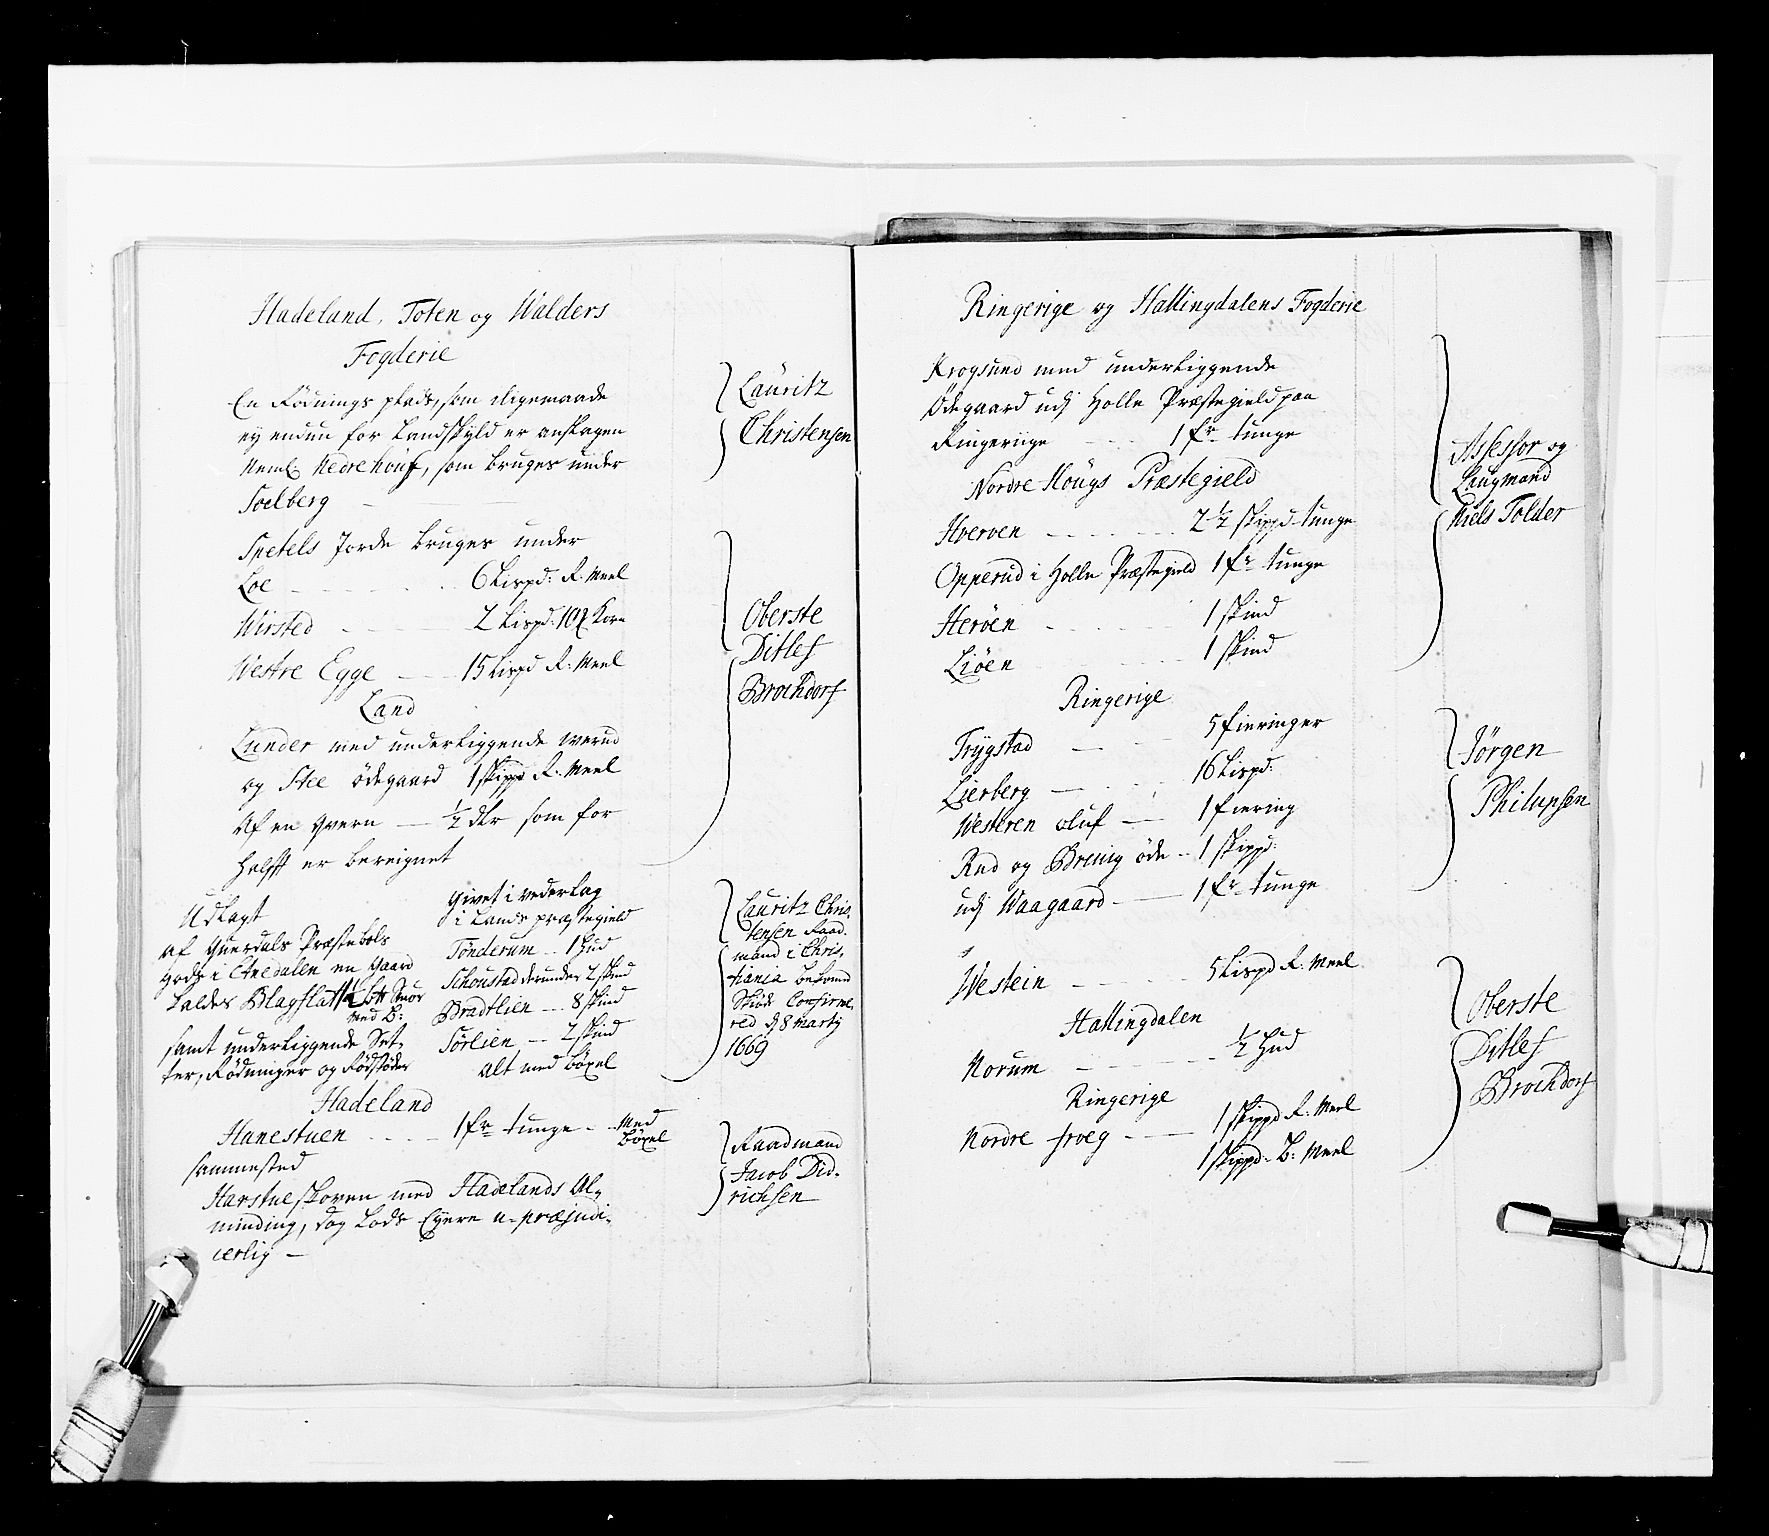 Hadeland, Toten og Walders
Fogderie
En Rødnings plads, som ligemaade
ey endnu for Landskyld er anslagen
Neml Nedrehouf, som bruges under
Soelberg
Lauritz
Christensen
Snetels Jorde bruges under
Loe - - - 6 Lispd: R. Meel
Wirsted - - 2 Lispd: 10 Korn
Westre Egge - 15 Lispd R: Meel
Land
Lunder med underliggende Werud
og Stee ødegaard 1 skippd R. Meel
Af en Qvern - ½ dlr som for
halfft er bereignet
Oberste
Ditlef
Brochdorf
Udlagt
af Querdals Præstebols
gods i en Gaard
kaldes Blagslatt ½ Smør
Med B:
samt underliggende Set-
ter, Rødninger og Rødstøder
Givet i vederlag
i Lands præstegield
Tønderum - - 1 hud
Schoustad derunder 2 skind
Bradtlien - - 8 skind
Sørlien - - 2 skind
alt med bøxel
Lauritz Chris-
tensen Raad-
mand i Chris-
tiania bekom
Skiøde Confirme-
red d 8 Marty
1669
Hadeland
Hanestuen - - 1 fr tunge - - Med
Bøxel
sammested
Harstueskoven med Hadelands Al-
minding, dog Lods Eyere u-præjudi-
cerlig -
Raadmand
Jacob Did-
richsen
Ringerige og Hallingdalens Fogderie
Krogsund med underliggende
Ødegaard udj Holle Præstegield paa
Ringeriige - - 1 fr tunge
Nordre Hougs Præstegield
Hverven - - - 2 ½ skippd tunge
Opperud i Holle Præstegield 1 fr tunge
Herøen - - - 1 skind
Liøen - - - 1 skind
Assessor og
Laugmand
Niels Tolder
Ringerige
Trygstad - - 5 fieringer
Lierberg - - 16 Lispd:
Westeren oluf - 1 fiering
Rud og øde - - 1 skippd:
udj Waagaard - 1 fr tunge
Jørgen
Philupsen
Westein - - - 5 Lispd R. Meel
Hallingdalen
Norum - - - ½ hud
Ringerige
Nordre - - 1 skippd R: Meel
1 skippd - B: Meel
Oberste
Ditlef
Brochdorf